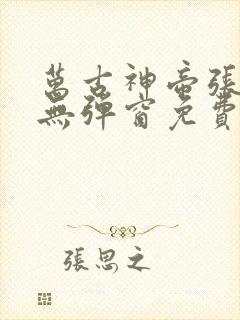 萬古神帝張
無彈窗免費
張思之